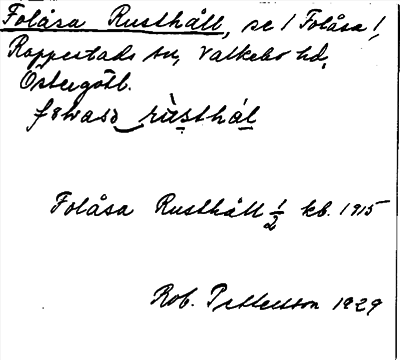 Folåsa Rusthåll, se ! Folåsa !,
Rappestads sn, Valkebo hd,
Östergötl.
Folåsa Rusthåll 1/2 kb. 1915
Rob. Pettersson 1929